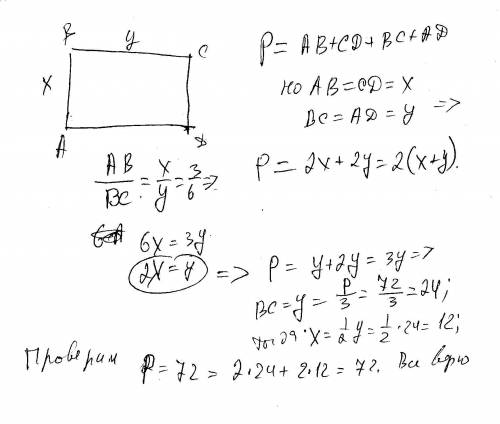 B y C
P = AB+CD+BC+AD
X
но AB=CD=X
BC=AD=y =>
A D
AB/BC = x/y = 3/6 =>
P = 2x+2y=2(x+y).
6x=3y
2x=y => P = y+2y=3y=>
BC=y= P/3 = 72/3 = 24;
тогда x= 1/2 y= 1/2 · 24= 12;
Проверим P=72= 2·24+2·12=72. Все верно